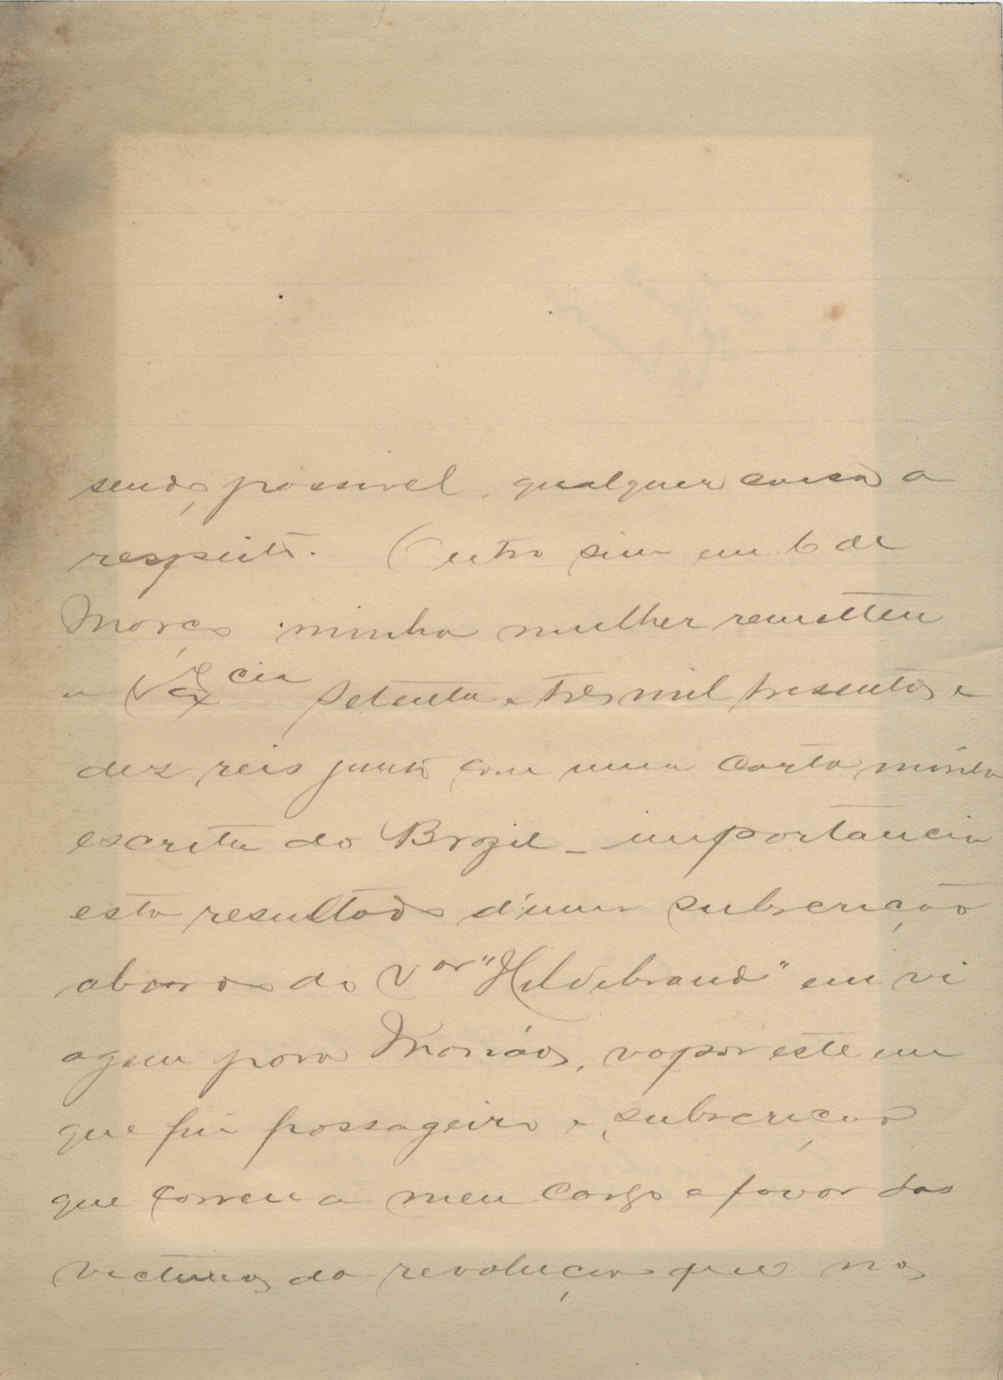 sendo, possivel, qualquer cousa a
respeito. Outro sim em 6 de
Março minha mulher remetteu
a V Ex.cia setenta e tres mil tresentos e
dez reis junto com uma carta minha
escrita do Brazil _ importancia
esta resultado d'uma subscrição
abordo do Vor "Hildebrand" em vi
agem para Manáos, vapor este em
que fui passageiro e subscrição
que correu a meu cargo a favor das
victimas da revolução que nos